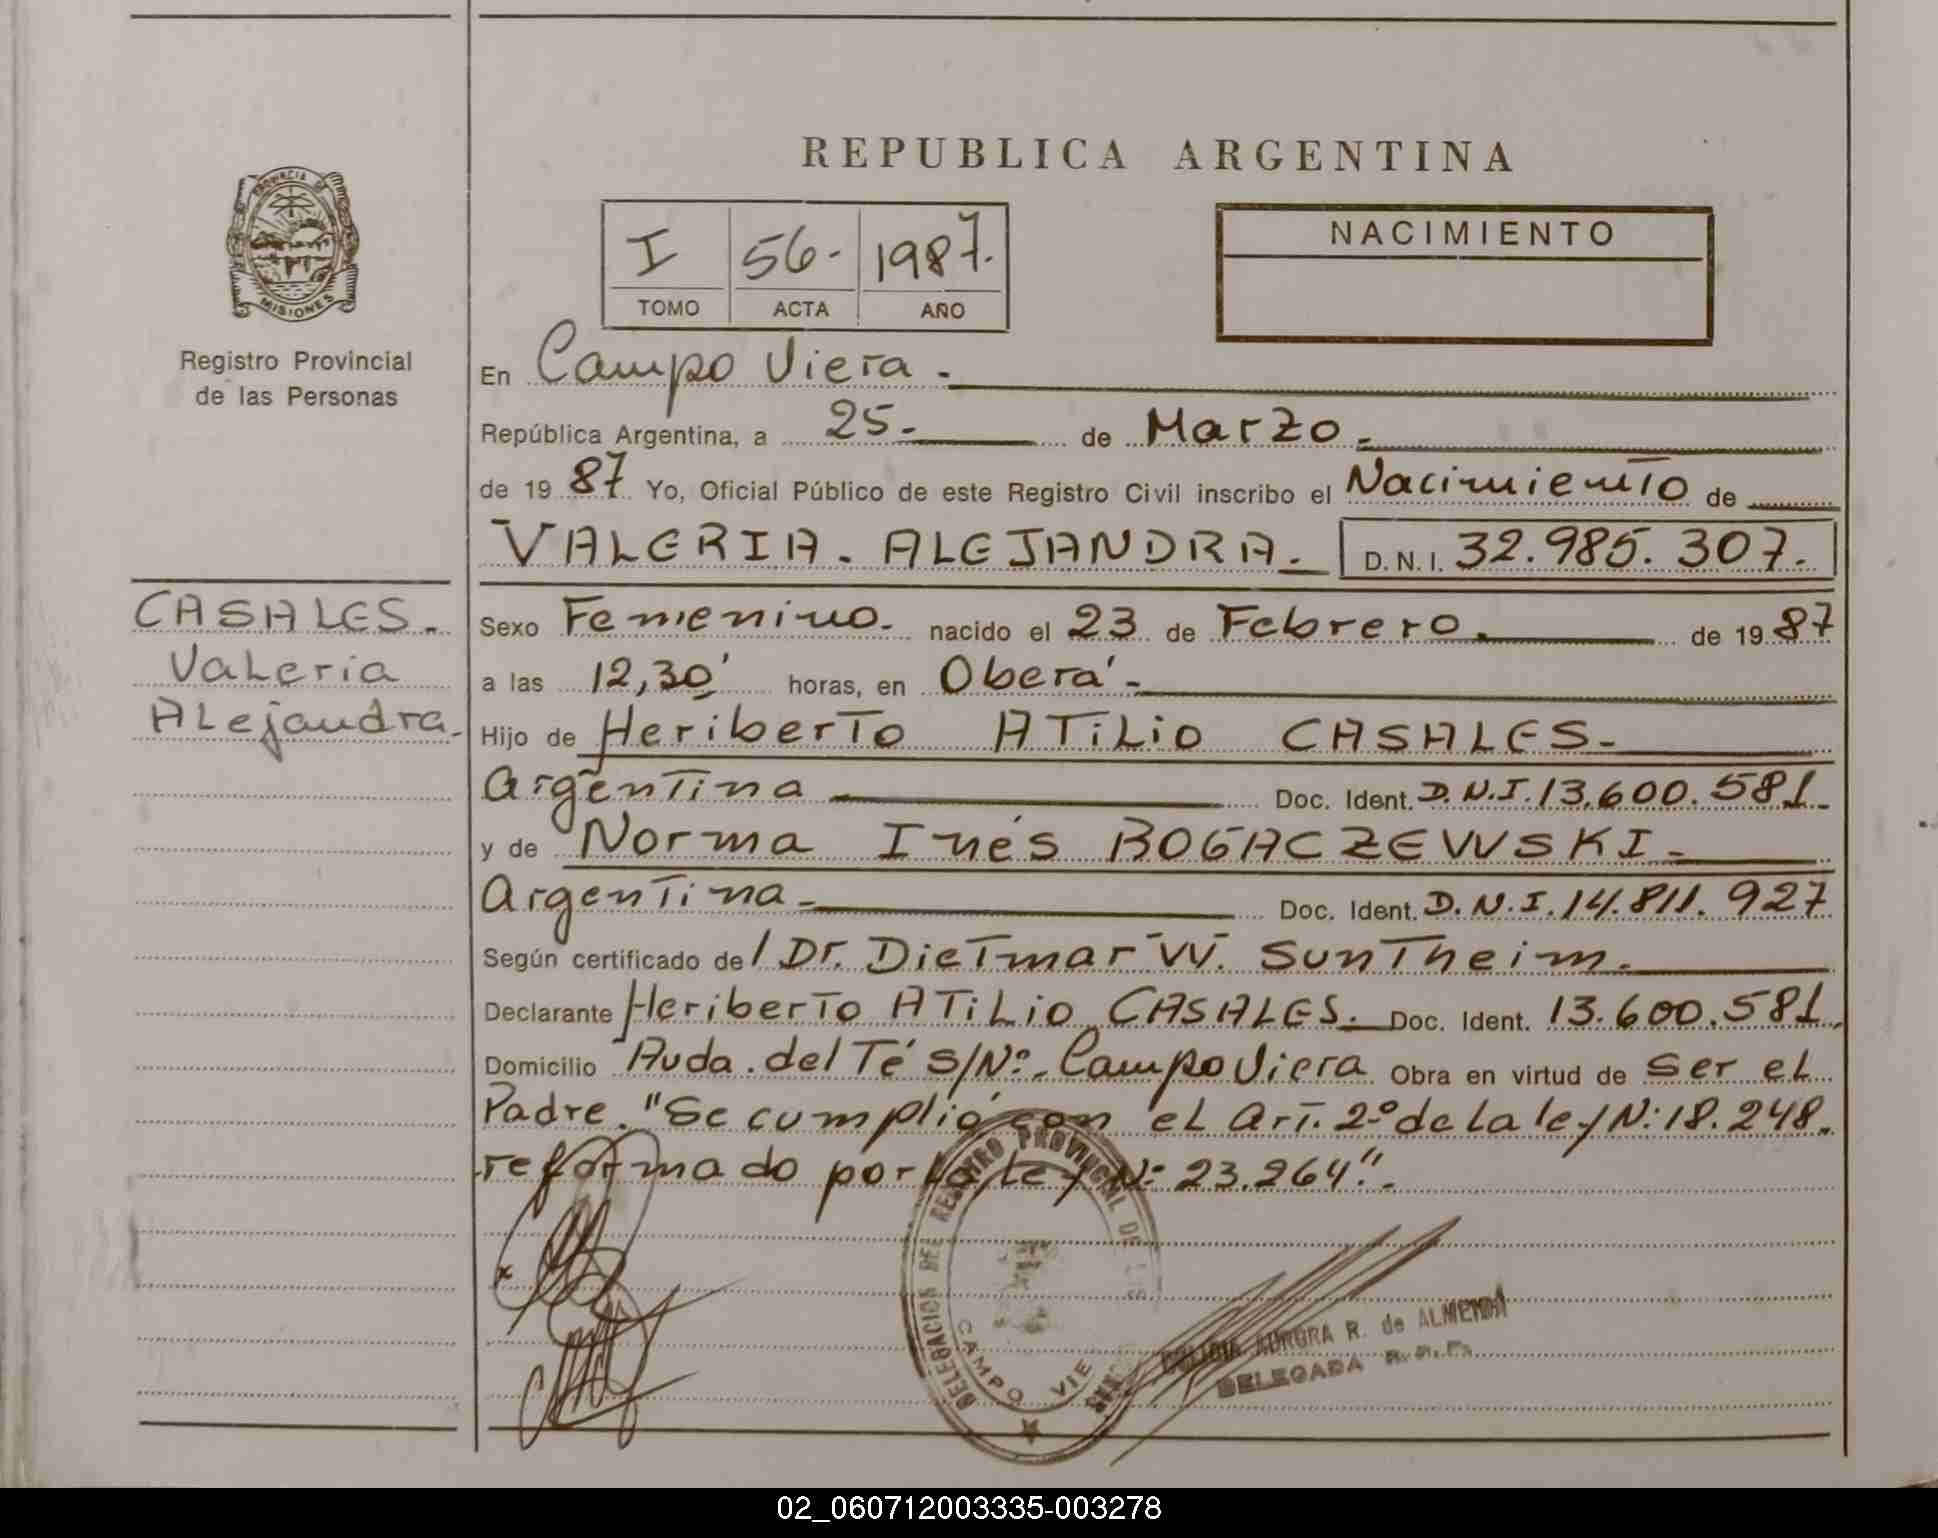 REPUBLICA ARGENTINA
PROVINCIA DE
MISIONES
Registro Provincial
de las Personas
I 56.- 1987.
TOMO ACTA AÑO
NACIMIENTO
En Campo Viera.-
República Argentina, a 25.- de Marzo.-
de 1987 Yo, Oficial Público de este Registro Civil inscribo el Nacimiento de
VALERIA. ALEJANDRA.- D.N.I. 32.985.307.
CASALES.-
Valeria
Alejandra.-
Sexo Femenino.- nacido el 23 de Febrero.- de 1987
a las 12,30' horas, en Oberá.-
Hijo de Heriberto ATiLio CASALES.-
Argentina Doc. Ident. D.N.I. 13.600.581.-
y de Norma Inés BOGACZEWSKI.-
Argentina.- Doc. Ident. D.N.I. 14.811.927
Según certificado del Dr. Dietmar W. Suntheim.-
Declarante Heriberto ATiLio CASALES.- Doc. Ident. 13.600.581.
Domicilio Avda. del Té S/Nº.- Campo Viera Obra en virtud de ser el
Padre. "Se cumplió con el Art. 2º de la ley Nº 18.248.
reformado por la ley Nº 23.264".-
DELEGACION DEL REGISTRO PROVINCIAL DE LAS
CAMPO VIE
AURORA R. de ALMEIDA
DELEGADA R.P.P.
02_060712003335-003278